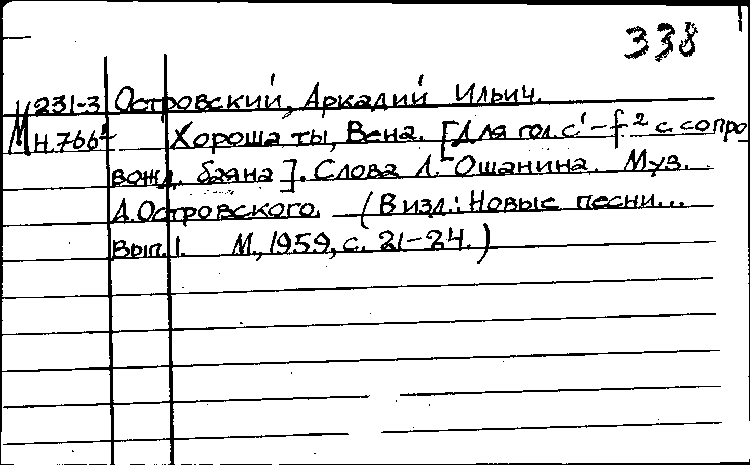 338
М 231-3 Островский, Аркадий Ильич.
Н.766 Хороша ты, Вена. [Для гол. c¹-f² с сопро
вожд. баяна]. Слова Л. Ошанина. Муз.
А. Островского. (В изд.: Новые песни...
Вып. 1. М., 1959, с. 21-24.)